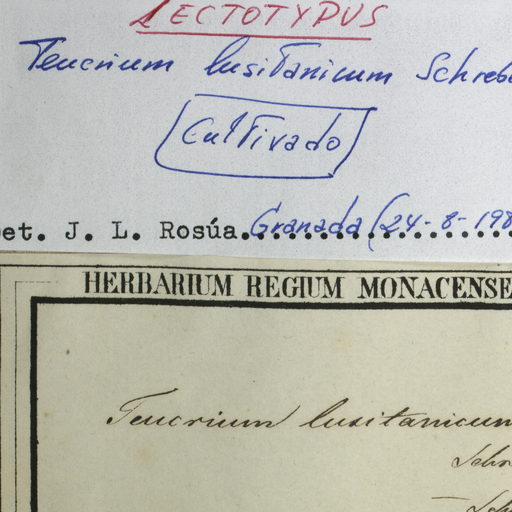 LECTOTYPUS
Teucrium lusitanicum Schreb
Cultivado
et. J. L. Rosúa. Granada (24-8-198
HERBARIUM REGIUM MONACENSE
Teucrium lusitanicum
Schr